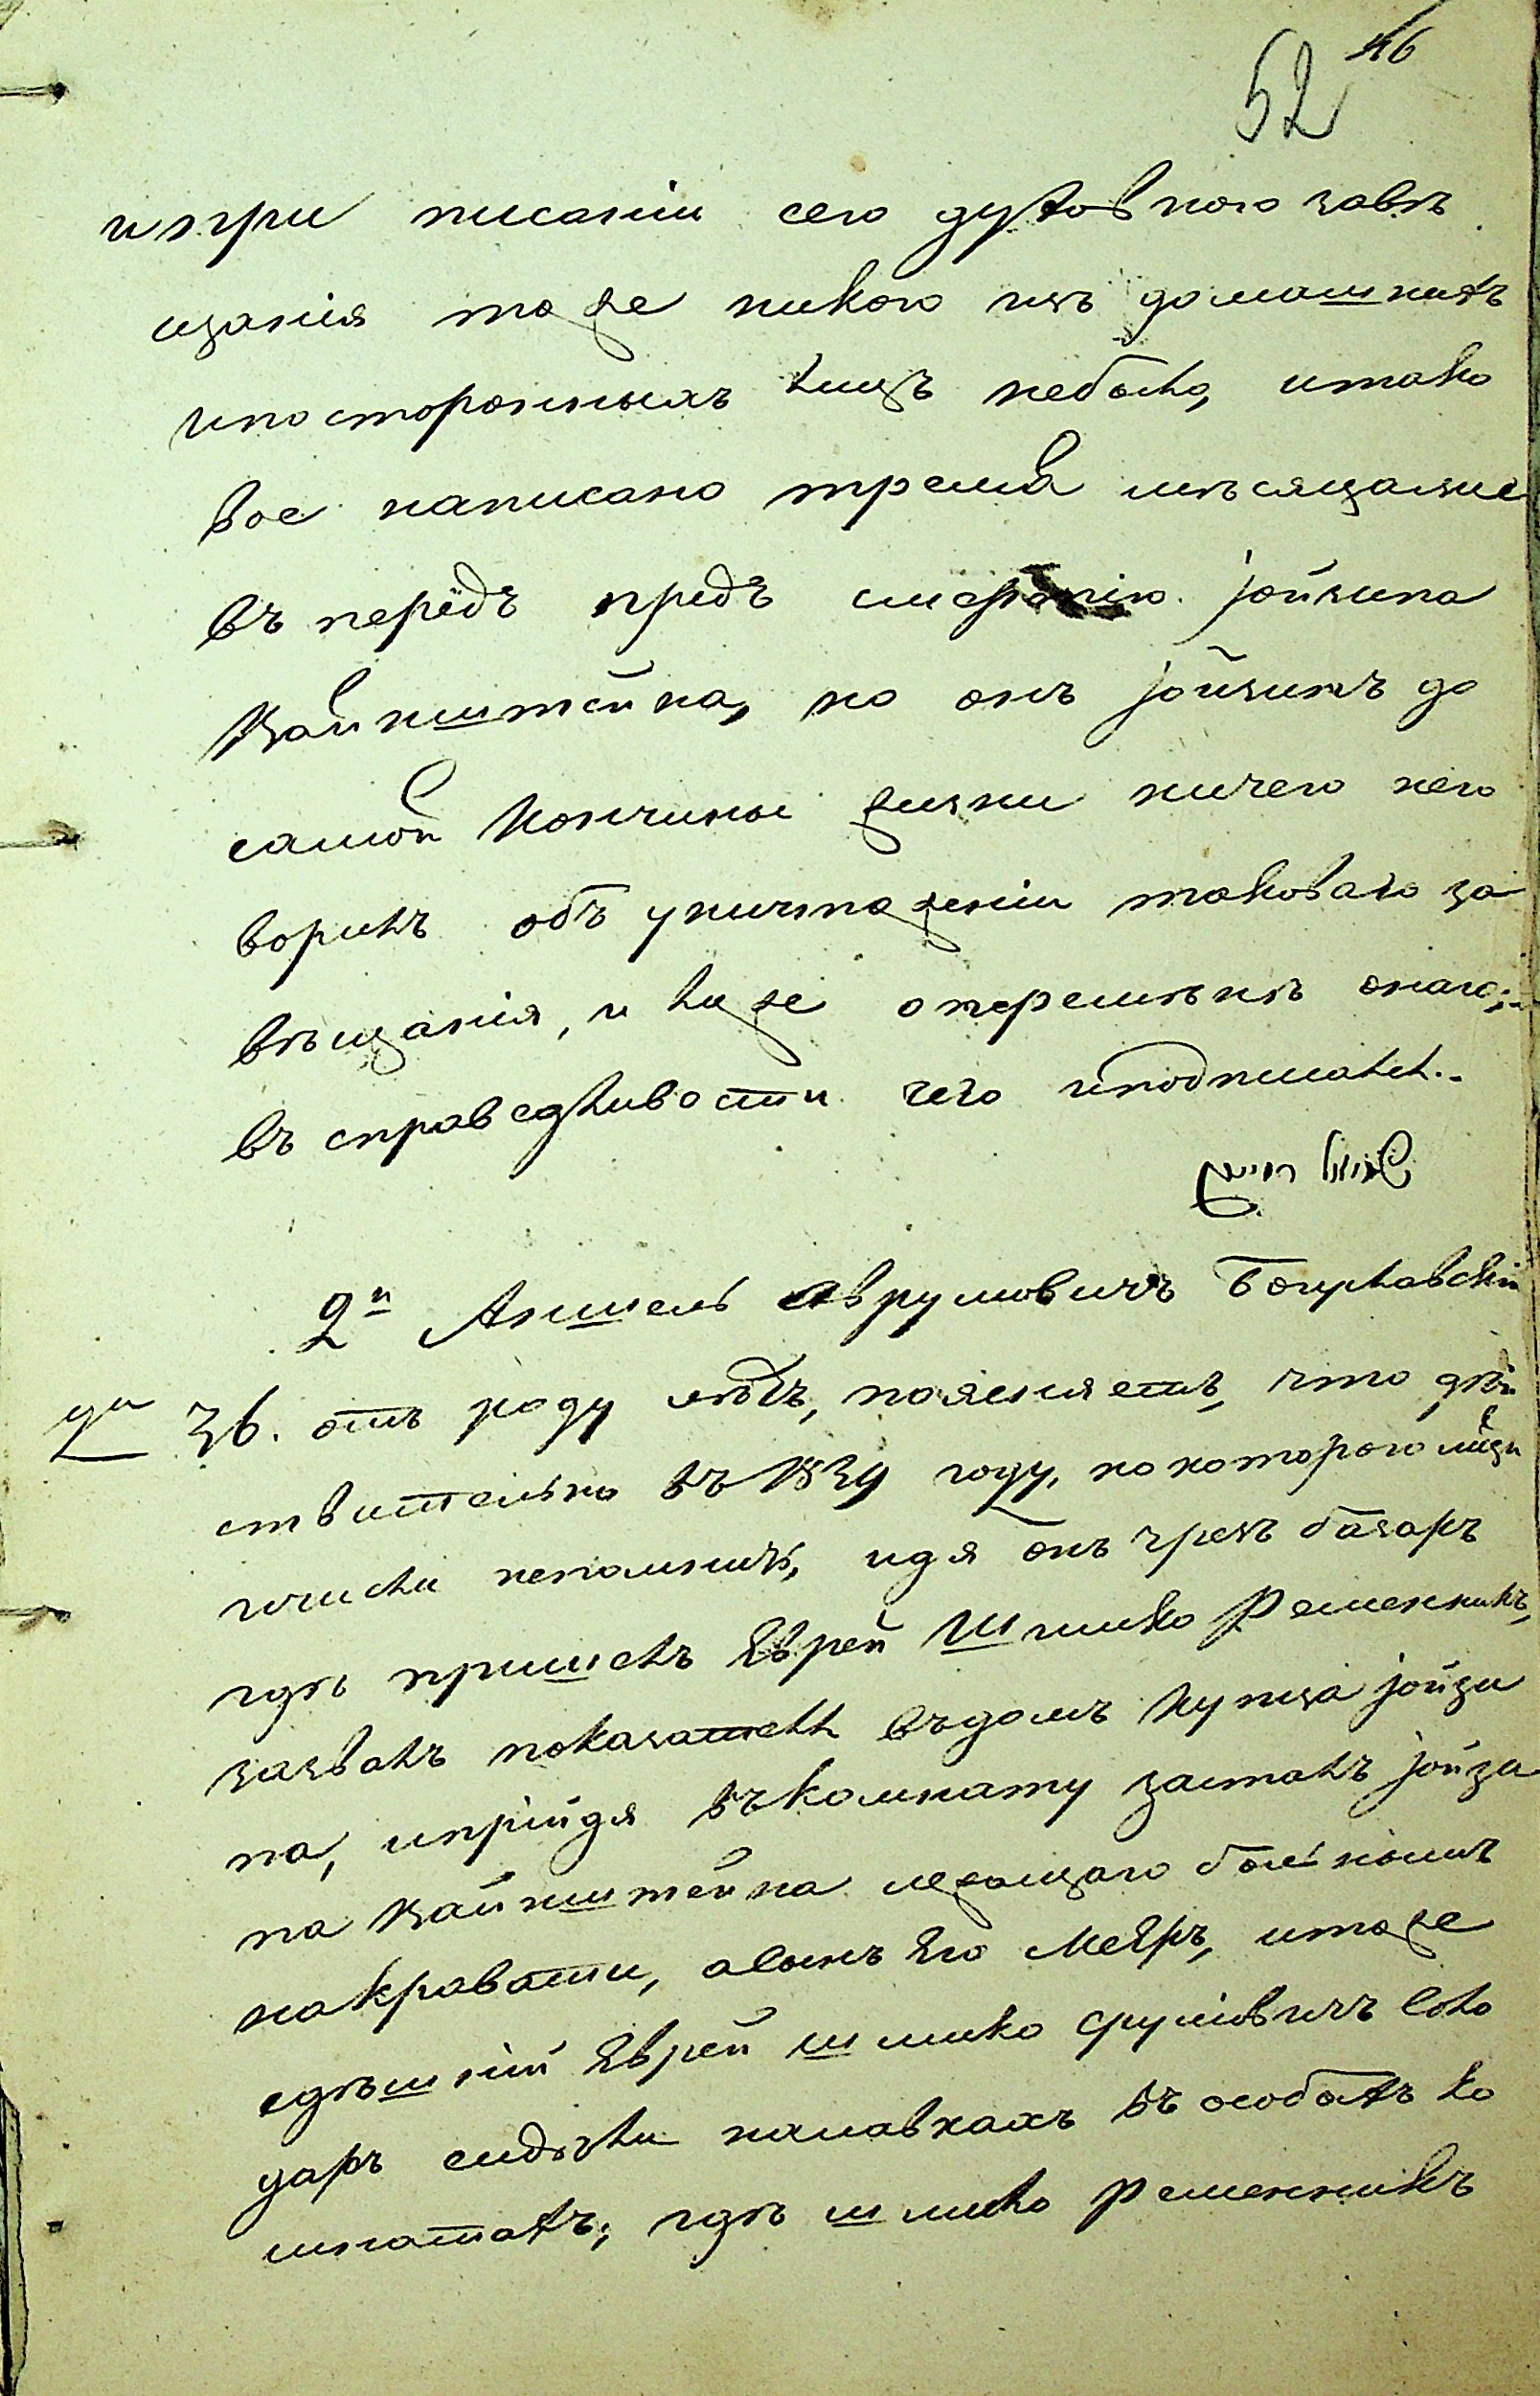 46
52
и при писаніи сего духовного завѣ
щанія тоже никого изъ домашнихъ
и посторонныхъ лицъ небыло, итако
вое написано тремя мѣсяцамые
въ перёдъ предъ смертію Іойзипа
Вайнштейна, но онъ Іойзипъ до
самой кончины жизни ничего него
ворилъ объ уничтоженіи таковаго за
вѣщанія, и ниже оперемѣнѣ онаго;
въ справедливости чего иподписался.
2й Аншель Аврумовичъ Богуславскій
36. отъ роду лѣтъ, поясняетъ, что дѣй
ствительно въ 1839 году, но котораго мѣсяца
ичисла непомнитъ, идя онъ чрезъ базаръ
гдѣ пришелъ Еврей Шмико Ременникъ,
зазвалъ показателя въдомъ купца Іойзи
па, иприйдя въкомнату засталъ Іойзи
па Вайнштейна лежащаго больнымъ
накровати, асынъ Его Меєръ, итоже
здѣшній Еврей Шмико Срулiовичъ Сло
царъ сидѣли налавкахъ въ особахъ ко
мнатахъ; гдѣ Шмико Ременникъ